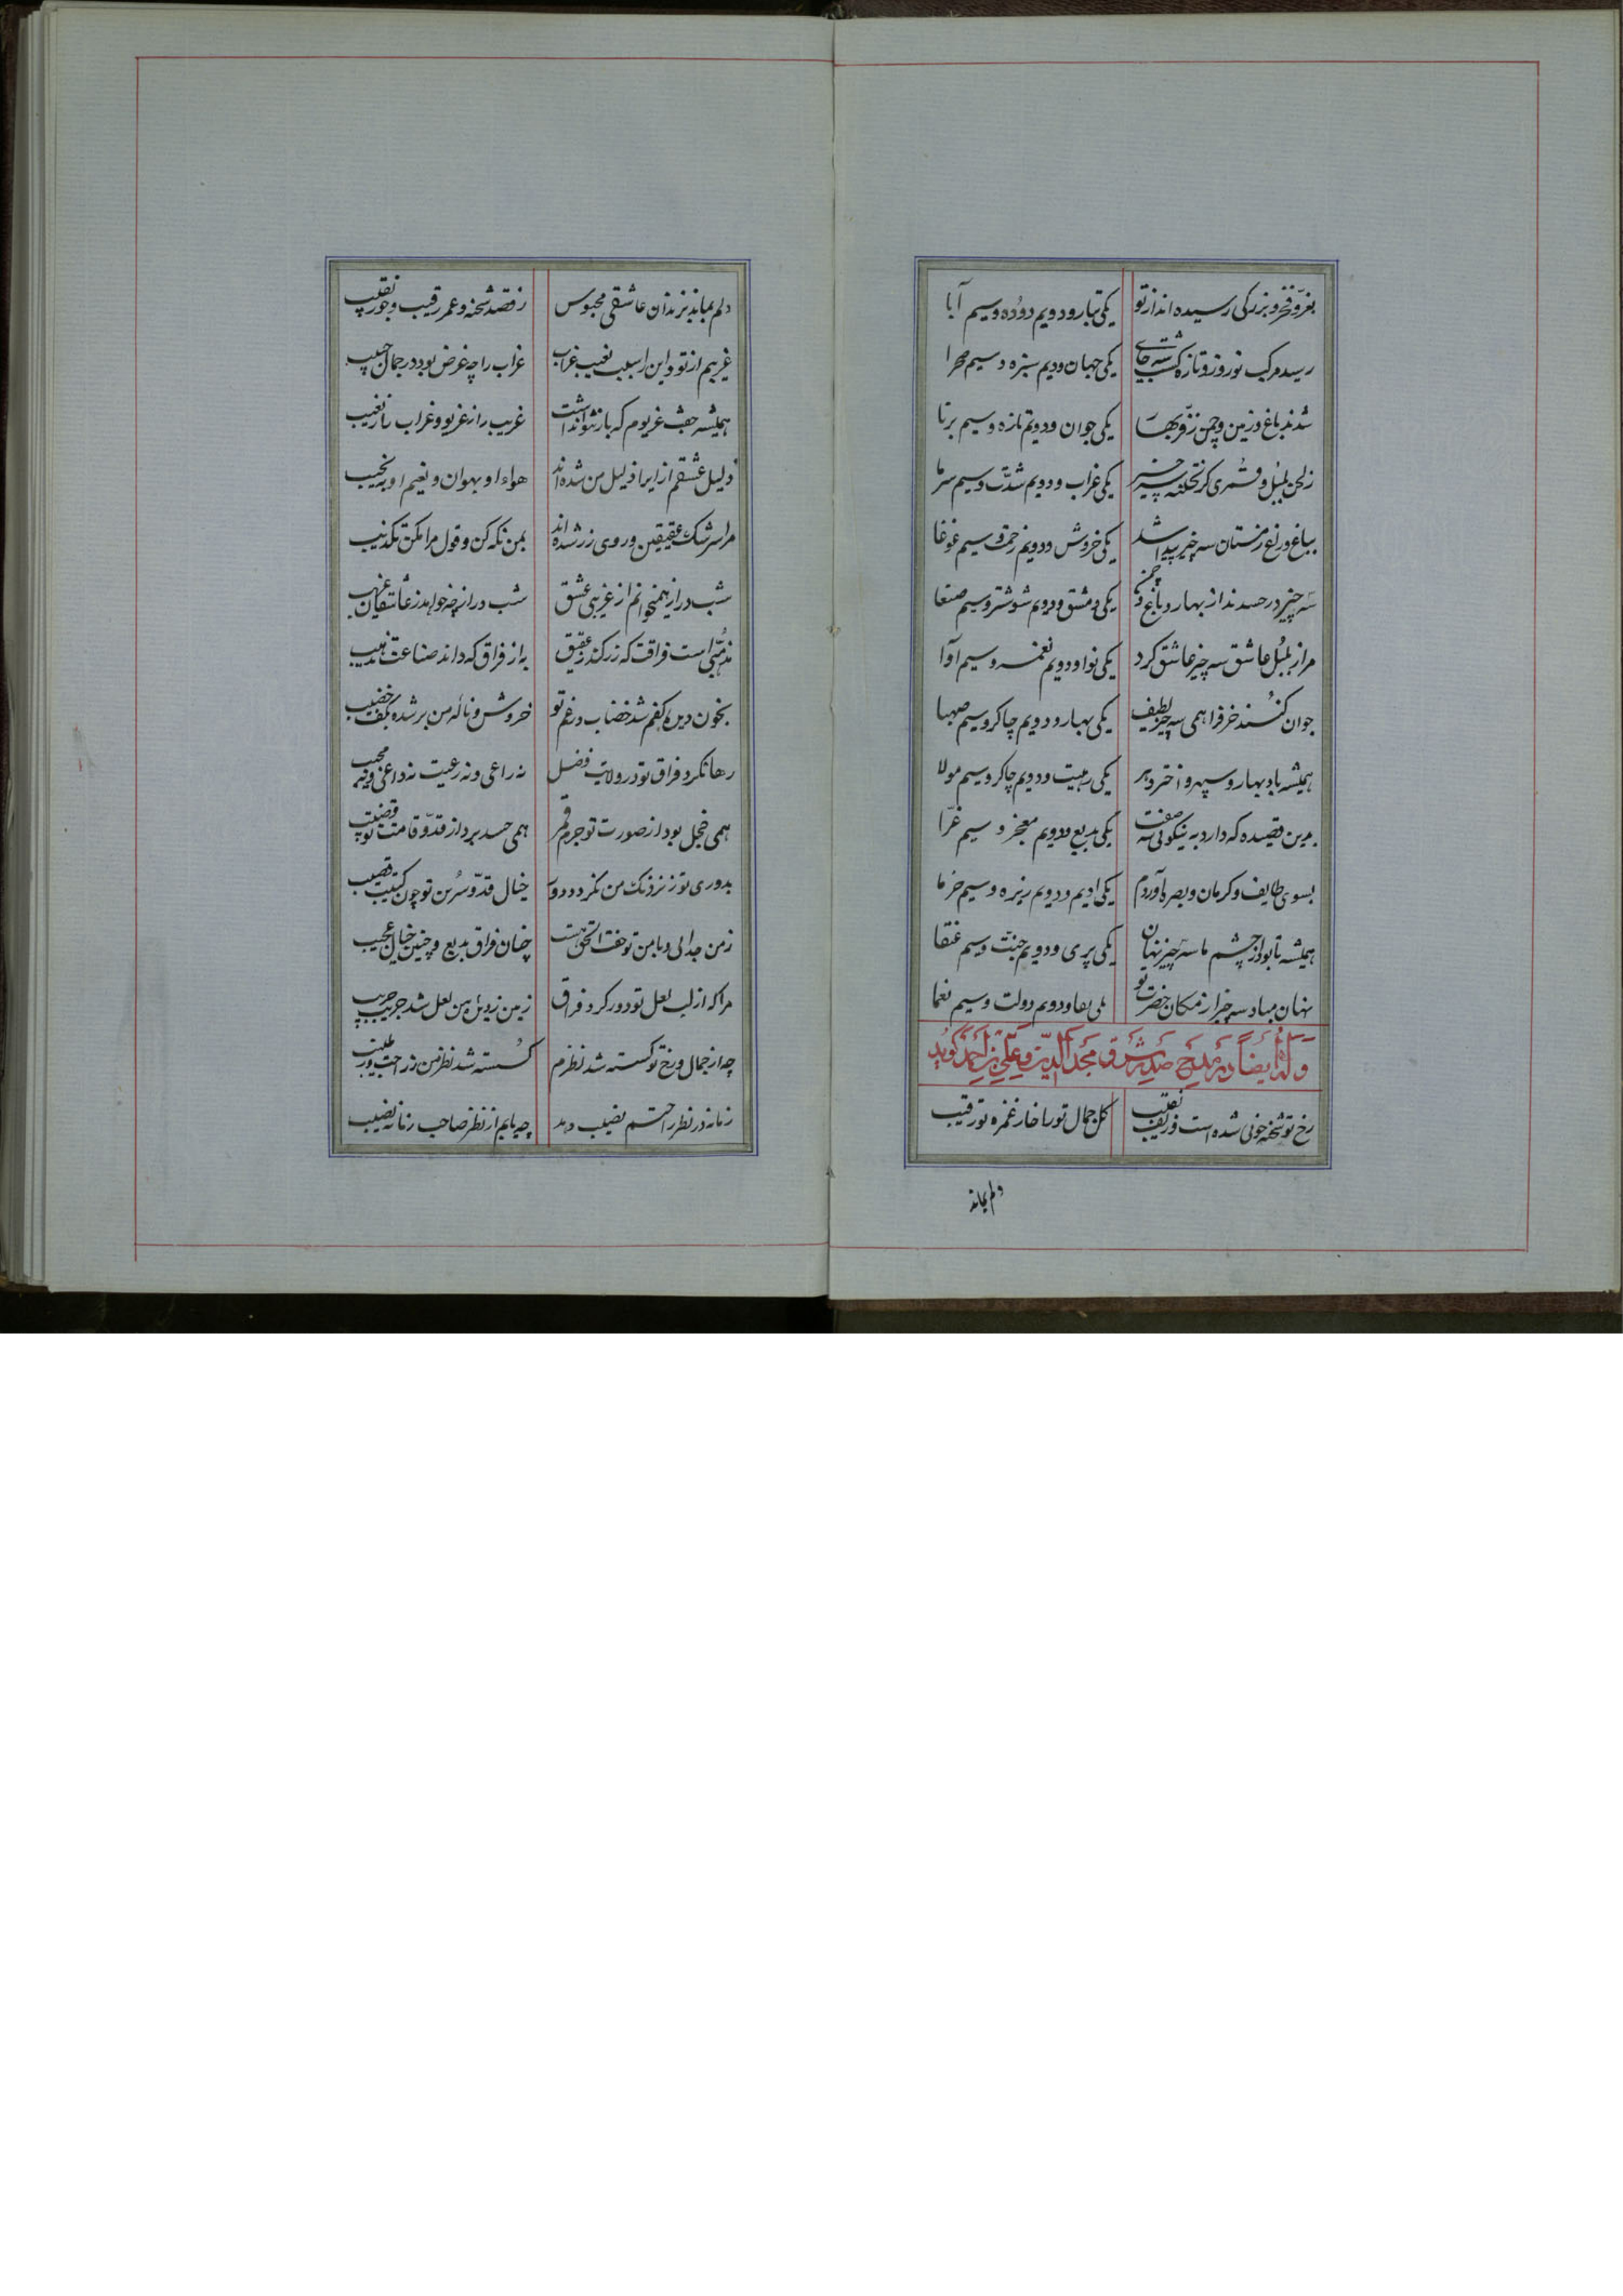 بعز و فخر و بزرگی رسیده اند از تو یکی تبار و دویم دوده و سیم آبا
رسید مرکب نوروز و تازه گشت سه جای یکی جهان و دویم سبزه و سیم صحرا
شدند باغ و زمین و چمن ز فر بهار یکی جوان و دویم تازه و سیم برنا
ز لحن بلبل و قمری گریختند سه چیز یکی غراب و دویم شدّت و سیم سرما
بباغ و راغ زمستان سه چیز پیدا شد یکی خروش و دویم زحمت و سیم غوغا
سه چیز در حسدند از بهار و باغ و چمن یکی دمشق و دویم شوشتر و سیم صنعا
مرا ز بلبل عاشق سه چیز عاشق کرد یکی نوا و دویم نغمه و سیم آوا
جوان کنند خرف را همی سه چیز لطیف یکی بهار و دویم چاکر و سیم صهبا
همیشه باد بهار و سپهر و اختر و دهر یکی رهیت و دویم چاکر و سیم مولا
بدین قصیده که دارد به نیکوئی سه صفت یکی بدیع و دویم معجز و سیم غرّا
بسوی طایف و کرمان و بصره آوردم یکی ادیم و دویم زیره و سیم خرما
همیشه تا بود از چشم ما سه چیز نهان یکی پری و دویم جنّت و سیم عنقا
نهان مباد سه چیز از مکان حضرت تو یکی بقا و دویم دولت و سیم نعما
وله ایضاً در مدیح صدر شرق مجد الدین علی بن احمد گوید
رخ تو شحنه خوبی شده است و زلف نقیب گل جمال تو را خار غمزه تو رقیب
دلم بماند
دلم بماند بزندان عاشقی محبوس ز قصد شحنه و عمر رقیب و جور نقیب
غریبم از تو و این را سبب نعیب غراب غراب را چه غرض بود در جمال حبیب
همیشه جفت غریوم که باز نتوانداشت غریب را ز غریو و غراب را ز نعیب
دلیل عشقم از ایرا ذلیل من شده اند هواء او بهوان و نعیم او به نحیب
مرا سرشک عقیقین و روی زر شده اند بمن نگه کن و قول مرا مکن تکذیب
شب دراز همیخوانم از غریبی عشق شب دراز چه خواهد ز عاشقان غریب
مذهّبی است فراقت که زر کند ز عقیق به از فراق که داند صناعت تذهیب
بخون دیده کفم شد خضاب در غم تو خروش و ناله من بر شده بکف خضیب
رها نکرد فراق تو در ولایت فضل نه راعی و نه رعیت نه داعی و نه مجیب
همی خجل بود از صورت تو جرم قمر همی حسد برد از قدّ و قامت تو قضیب
بدوری تو ز نزدیک من نگردد دور خیال قدّ و سرین تو چون کثیب و قضیب
ز من جدائی و با من تو جفت الحق هست چنان فراق بدیع و چنین خیال عجیب
مرا که از لب لعل تو دور کرد فراق زمین ز دیده من لعل شد جریب جریب
چه از جمال و رخ تو گسسته شد نظرم گسسته شد نظر من ز راحت و ز طیب
زمانه در نظر راحتم نصیب دهد چه یابم از نظر صاحب زمانه نصیب